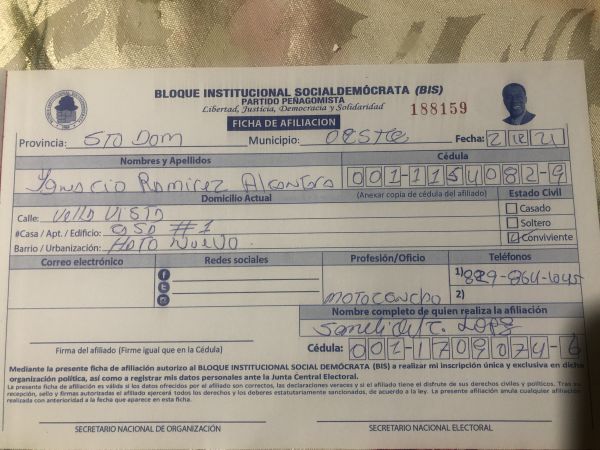 BLOQUE INSTITUCIONAL SOCIALDEMÓCRATA (BIS)
PARTIDO PEÑAGOMISTA
Libertad, Justicia, Democracia y Solidaridad
188159
FICHA DE AFILIACION
Provincia: STO DOM Municipio: OESTE Fecha: 2 12 21
Nombres y Apellidos Cédula
Ignacio Ramirez Alcantara 001-1154082-9
Domicilio Actual (Anexar copia de cédula del afiliado) Estado Civil
Calle: Vella VISTA Casado
#Casa / Apt. / Edificio: CASA #1 Soltero
Barrio / Urbanización: HATO NUEVO Conviviente
Correo electrónico Redes sociales Profesión/Oficio Teléfonos
1) 829-864-1045
MOTOCONCHO 2)
Nombre completo de quien realiza la afiliación
Firma del afiliado (Firme igual que en la Cédula) Cédula: 001-1709074-6
Mediante la presente ficha de afiliación autorizo al BLOQUE INSTITUCIONAL SOCIAL DEMÓCRATA (BIS) a realizar mi inscripción única y exclusiva en dicha
organización política, así como a registrar mis datos personales ante la Junta Central Electoral.
La presente ficha de afiliación es válida si los datos ofrecidos por el afiliado son correctos, las declaraciones veraces y si el afiliado tiene el disfrute de sus derechos civiles y políticos. Tras su
recepción, sello y firmas autorizadas el afiliado ejercerá todos los derechos y los deberes estatutariamente sancionados, de acuerdo a la ley. La presente afiliación anula cualquier afiliación
realizada con anterioridad a la fecha que aparece en esta ficha.
SECRETARIO NACIONAL DE ORGANIZACIÓN SECRETARIO NACIONAL ELECTORAL